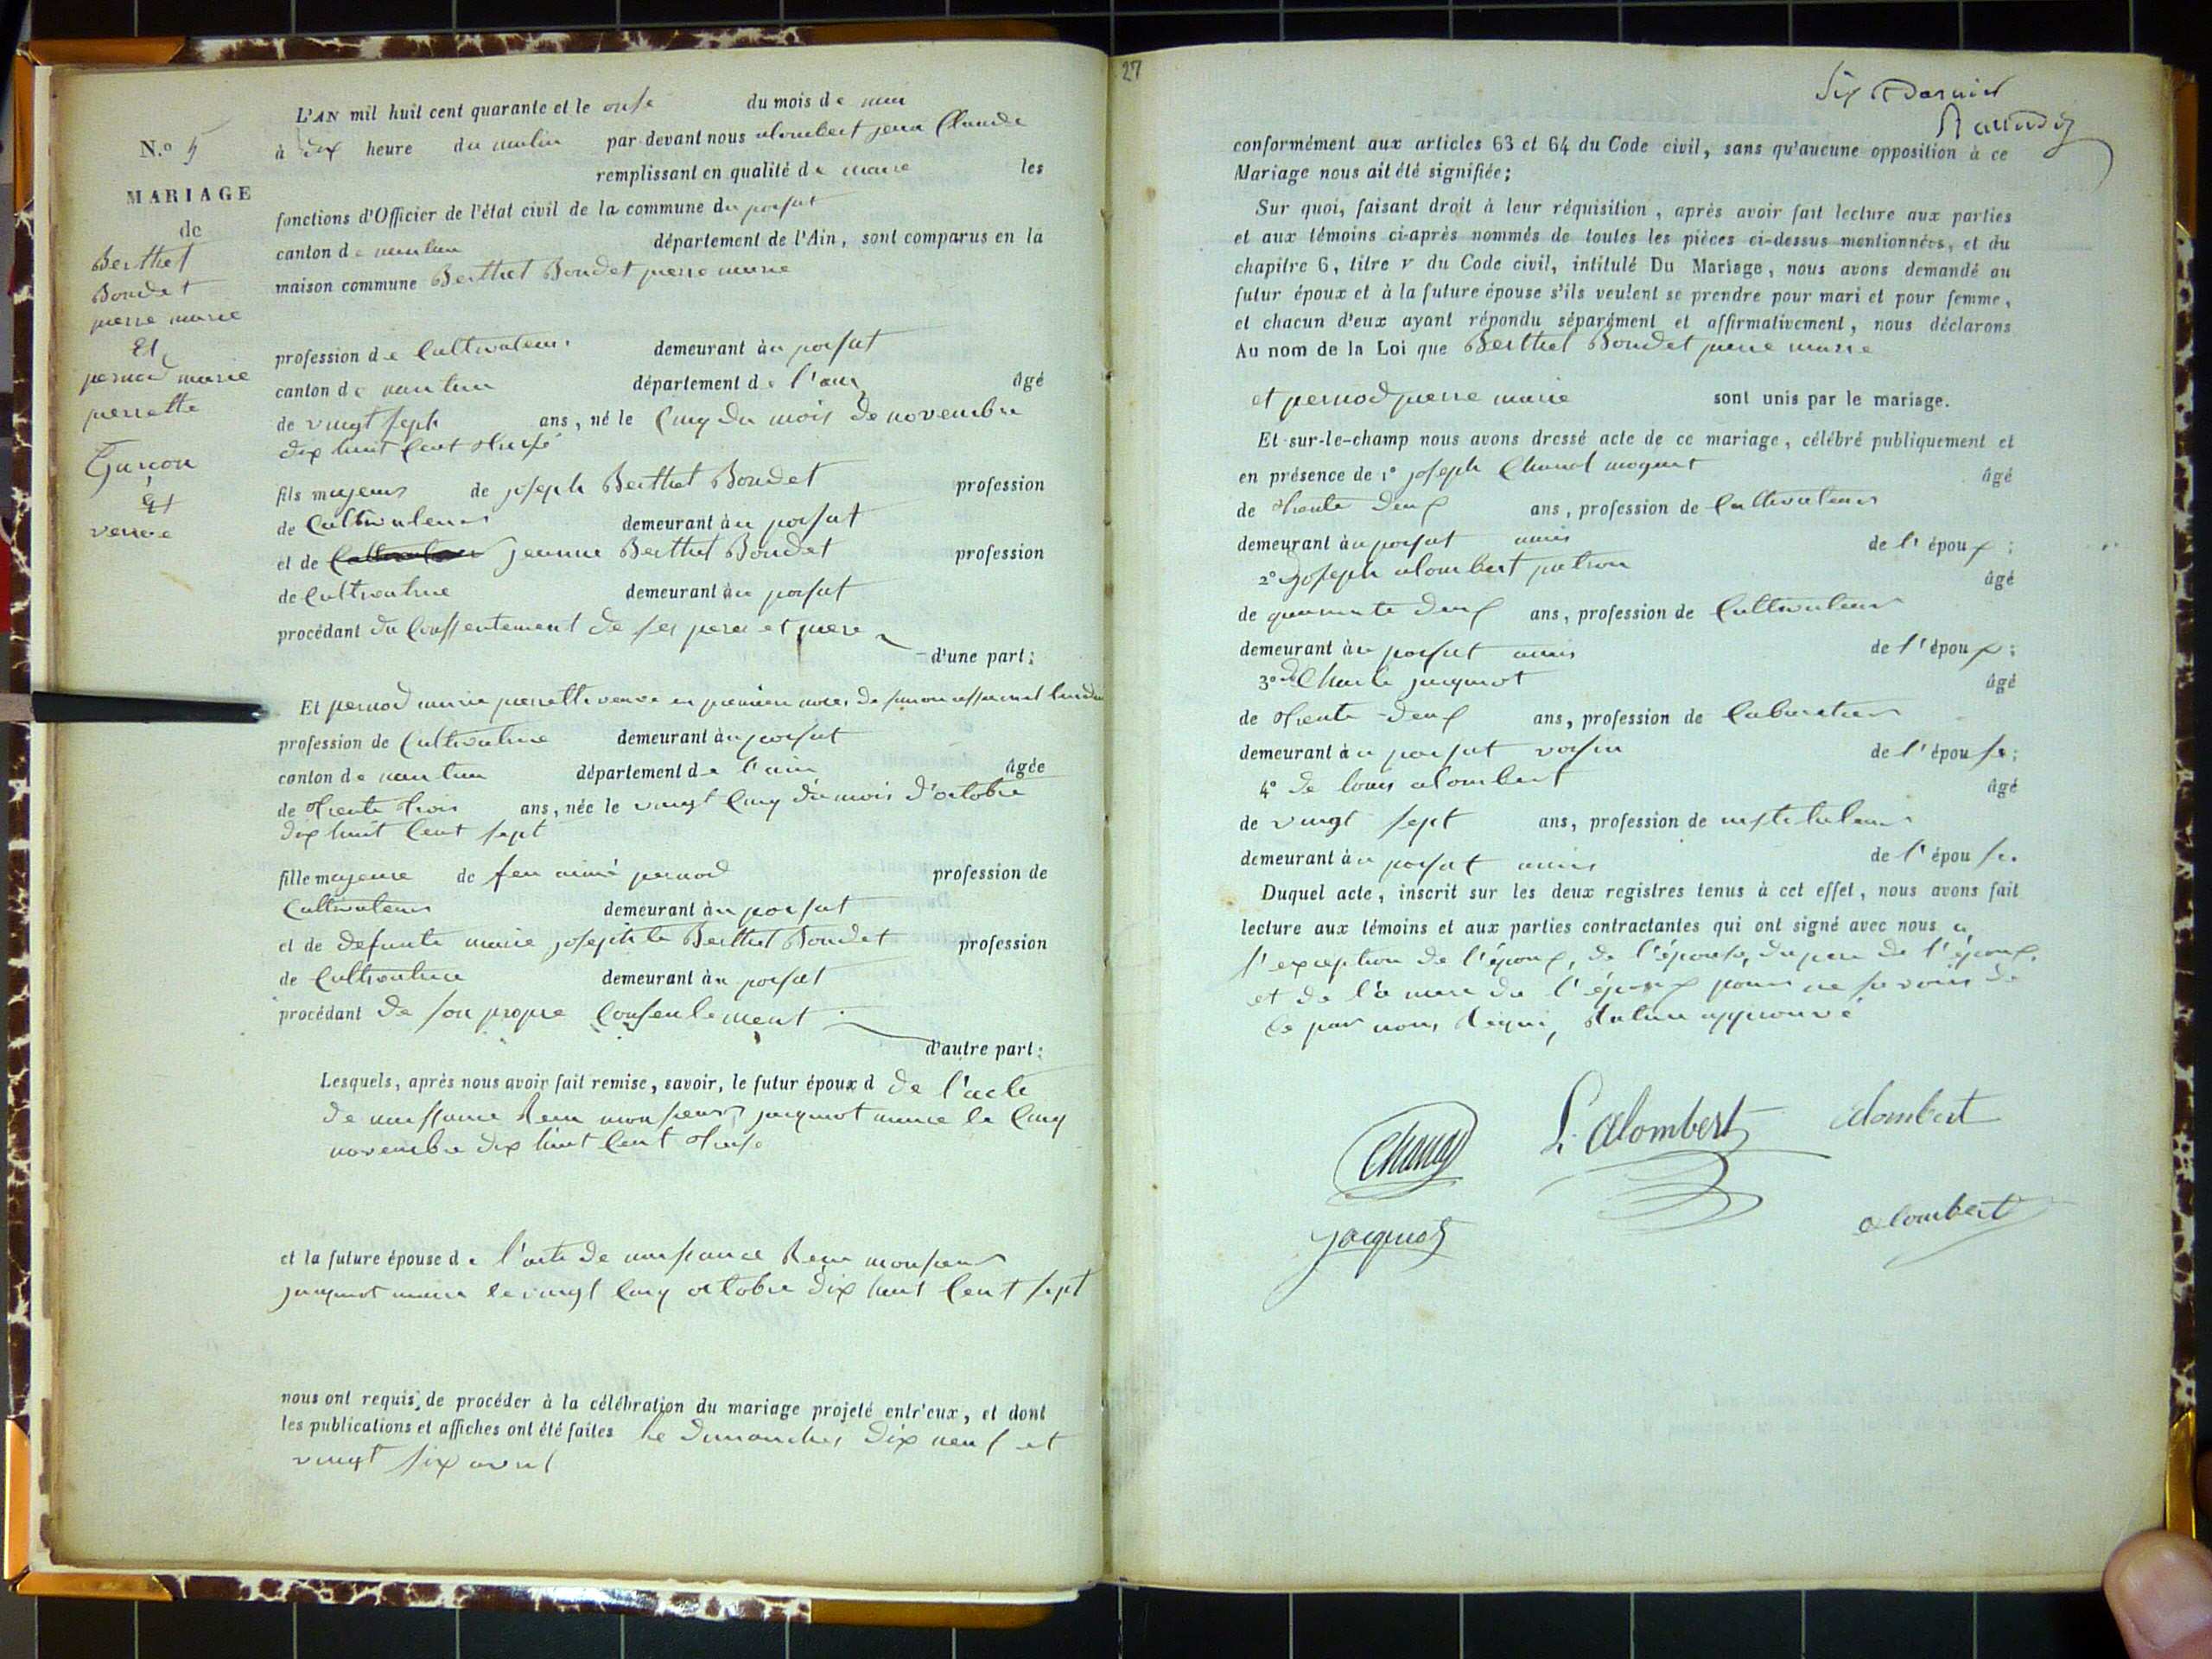 N.o 5
MARIAGE
de
Berthet
Boudet
pierre marie
Et
pernod marie
pierrette
Garcon
Et
veuve
L'AN mil huit cent quarante et le onse du mois de mai
à dix heure du matin par devant nous alombert jean Claude
remplissant en qualité de maire les
fonctions d'Officier de l'état civil de la commune du poisat
canton de nantua département de l'Ain, sont comparus en la
maison commune Berthet Boudet pierre marie
profession de Cultivateur demeurant au poisat
canton de nantua département de l'ain âgé
de vingt sept ans, né le Cinq du mois de novembre
dix huit Cent
fils majeur de joseph Berthet Boudet profession
de Cultivateur demeurant au poisat
et de jeanne Berthet Boudet profession
de Cultivatrice demeurant au poisat
procédant du Conssentement de ses pere et mere
d'une part;
Et pernod marie pierrette veuve en premiere noces de
profession de Cultivatrice demeurant au poisat
canton de nantua département de l'ain âgée
de trente trois ans, née le vingt Cinq du mois d'octobre
dix huit Cent sept
fille majeure de feu aimé pernod profession de
Cultivateur demeurant au poisat
et de defunte marie josephte Berthet Boudet profession
de Cultivatrice demeurant au poisat
procédant de son propre Consentement
d'autre part;
Lesquels, après nous avoir fait remise, savoir, le futur époux d de l'acte
de naissance Reçu monsieur jacquiot maire le Cinq
novembre dix huit Cent
et la future épouse de l'acte de naissance Reçu monsieur
jacquiot maire le vingt Cinq octobre dix huit Cent sept
nous ont requis de procéder à la célébration du mariage projeté entr'eux, et dont
les publications et affiches ont été faites le dimanches dix neuf et
vingt six avril
27
Six et Dernier
conformément aux articles 63 et 64 du Code civil, sans qu'aucune opposition à ce
Mariage nous ait été signifiée;
Sur quoi, faisant droit à leur réquisition, après avoir fait lecture aux parties
et aux témoins ci-après nommés de toutes les pièces ci-dessus mentionnées, et du
chapitre 6, titre v du Code civil, intitulé Du Mariage, nous avons demandé au
futur époux et à la future épouse s'ils veulent se prendre pour mari et pour femme,
et chacun d'eux ayant répondu séparément et affirmativement, nous déclarons
Au nom de la Loi que Berthet Boudet pierre marie
et pernod pierre marie sont unis par le mariage.
Et sur-le-champ nous avons dressé acte de ce mariage, célébré publiquement et
en présence de 1° joseph âgé
de trente deux ans, profession de Cultivateur
demeurant au poisat amis de l'époux;
2° joseph alombert patron âgé
de quarante deux ans, profession de Cultivateur
demeurant au poisat amis de l'époux;
3° de Charle jacquiot âgé
de trente deux ans, profession de
demeurant au poisat voisin de l'épouse;
4° de louis alombert âgé
de vingt sept ans, profession de instituteur
demeurant au poisat amis de l'épouse.
Duquel acte, inscrit sur les deux registres tenus à cet effet, nous avons fait
lecture aux témoins et aux parties contractantes qui ont signé avec nous a
l'exception de l'époux, de l'épouse, du pere de l'époux,
et de la mere de l'époux pour ne savoir de
ce par nous Requi, approuvé
L. Alombert alombert
jacquiot alombert